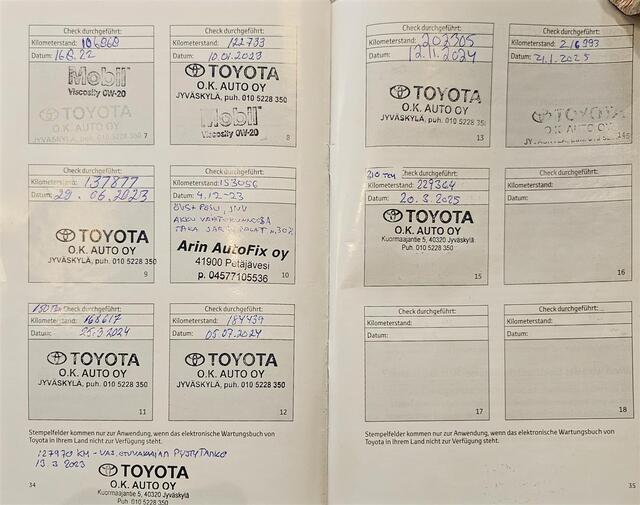 Check durchgeführt:
Kilometerstand: 106868
Datum: 16.8.22
Mobil
Viscosity 0W-20
TOYOTA
O.K. AUTO OY
7
Check durchgeführt:
Kilometerstand: 122733
Datum: 10.01.2023
TOYOTA
O.K. AUTO OY
JYVÄSKYLÄ, puh. 010 5228 350
Mobil
Viscosity 0W-20
8
Check durchgeführt:
Kilometerstand: 137877
Datum: 29.06.2023
TOYOTA
O.K. AUTO OY
JYVÄSKYLÄ, puh. 010 5228 350
9
Check durchgeführt:
Kilometerstand: 153056
Datum: 4.12-23
AKKU
TAKA
Arin AutoFix oy
41900 Petäjävesi
p. 04577105536
10
Check durchgeführt:
Kilometerstand: 168617
Datum: 25.3.2024
TOYOTA
O.K. AUTO OY
JYVÄSKYLÄ, puh. 010 5228 350
11
Check durchgeführt:
Kilometerstand: 184439
Datum: 05.07.2024
TOYOTA
O.K. AUTO OY
JYVÄSKYLÄ, puh. 010 5228 350
12
Stempelfelder kommen nur zur Anwendung, wenn das elektronische Wartungsbuch von
Toyota in Ihrem Land nicht zur Verfügung steht.
127970 KM - VAS. ETUVAKAAJAN PYSTYTANKO
13.3.2023
TOYOTA
O.K. AUTO OY
Kuormaajantie 5, 40320 Jyväskylä
Puh. 010 5228 350
34
Check durchgeführt:
Kilometerstand: 202305
Datum: 12.11.2024
TOYOTA
O.K. AUTO OY
JYVÄSKYLÄ, puh. 010 5228 35
13
Check durchgeführt:
Kilometerstand: 216993
Datum: 21.1.2025
TOYOTA
O.K. AUTO OY
Check durchgeführt:
Kilometerstand: 229364
Datum: 20.3.2025
TOYOTA
O.K. AUTO OY
Kuormaajantie 5, 40320 Jyväskylä
Puh. 010 5228 350
15
Check durchgeführt:
Kilometerstand:
Datum:
16
Check durchgeführt:
Kilometerstand:
Datum:
17
Check durchgeführt:
Kilometerstand:
Datum:
18
Stempelfelder kommen nur zur Anwendung, wenn das elektronische Wartungsbuch von
Toyota in Ihrem Land nicht zur Verfügung steht.
35